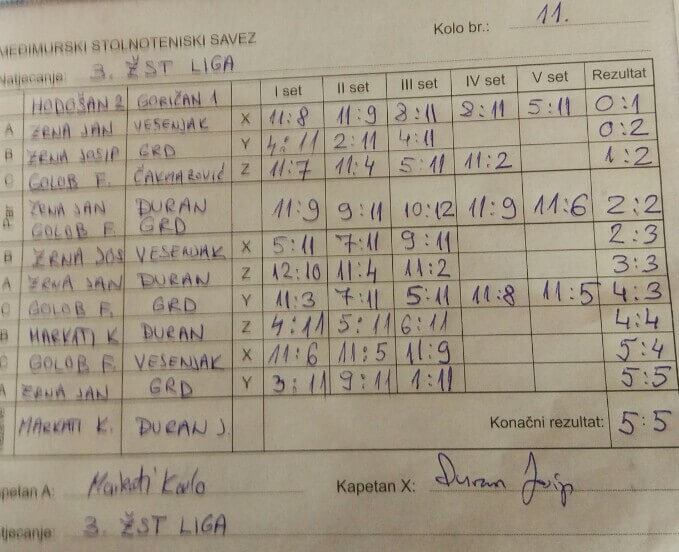 MEĐIMURSKI STOLNOTENISKI SAVEZ
Kolo br.: 11.
Natjecanje: 3. ŽST LIGA
HODOŠAN 2 GORIČAN 1 I set II set III set IV set V set Rezultat
A ZRNA JAN VESENJAK X 11:8 11:9 8:11 8:11 5:11 0:1
B ZRNA JOSIP GRD Y 4:11 2:11 4:11 0:2
C GOLOB F. ČAKMAZOVIĆ Z 11:7 11:4 5:11 11:2 1:2
ZRNA JAN DURAN
GOLOB F. GRD 11:9 9:11 10:12 11:9 11:6 2:2
B ZRNA JOS VESENJAK X 5:11 7:11 9:11 2:3
A ZRNA JAN DURAN Z 12:10 11:4 11:2 3:3
C GOLOB F. GRD Y 11:3 7:11 5:11 11:8 11:5 4:3
B MARKATI K DURAN Z 4:11 5:11 6:11 4:4
C GOLOB F. VESENJAK X 11:6 11:5 11:9 5:4
A ZRNA JAN GRD Y 3:11 9:11 1:11 5:5
MARKATI K. DURAN J. Konačni rezultat: 5:5
petan A: Markati Karlo Kapetan X: Duran Josip
tjecanje: 3. ŽST LIGA